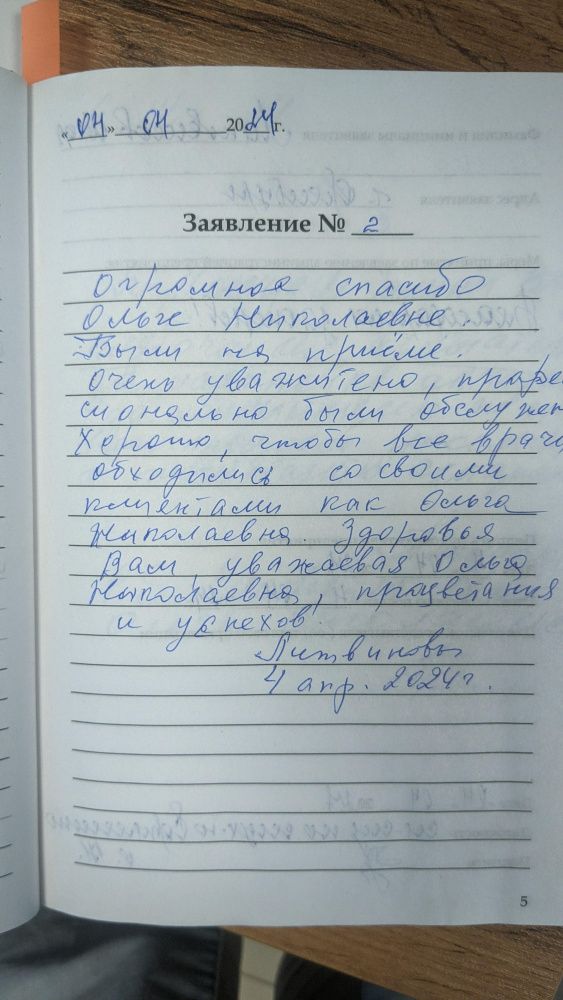 «04» 04 2024 г.
Заявление № 2
Огромное спасибо
Ольге Николаевне.
Были на приёме.
Очень уважитено, профес
сионально были обслужен
Хорошо, чтобы все врачи
обходились со своими
клиентами как Ольга
Николаевна. Здоровья
Вам, уважаевая Ольга
Николаевна, процветания
и успехов!
Литвиновы
4 апр. 2024г.
5